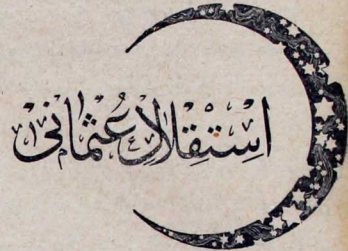 اِسْتِقْلَالِ عُثْمَانِی